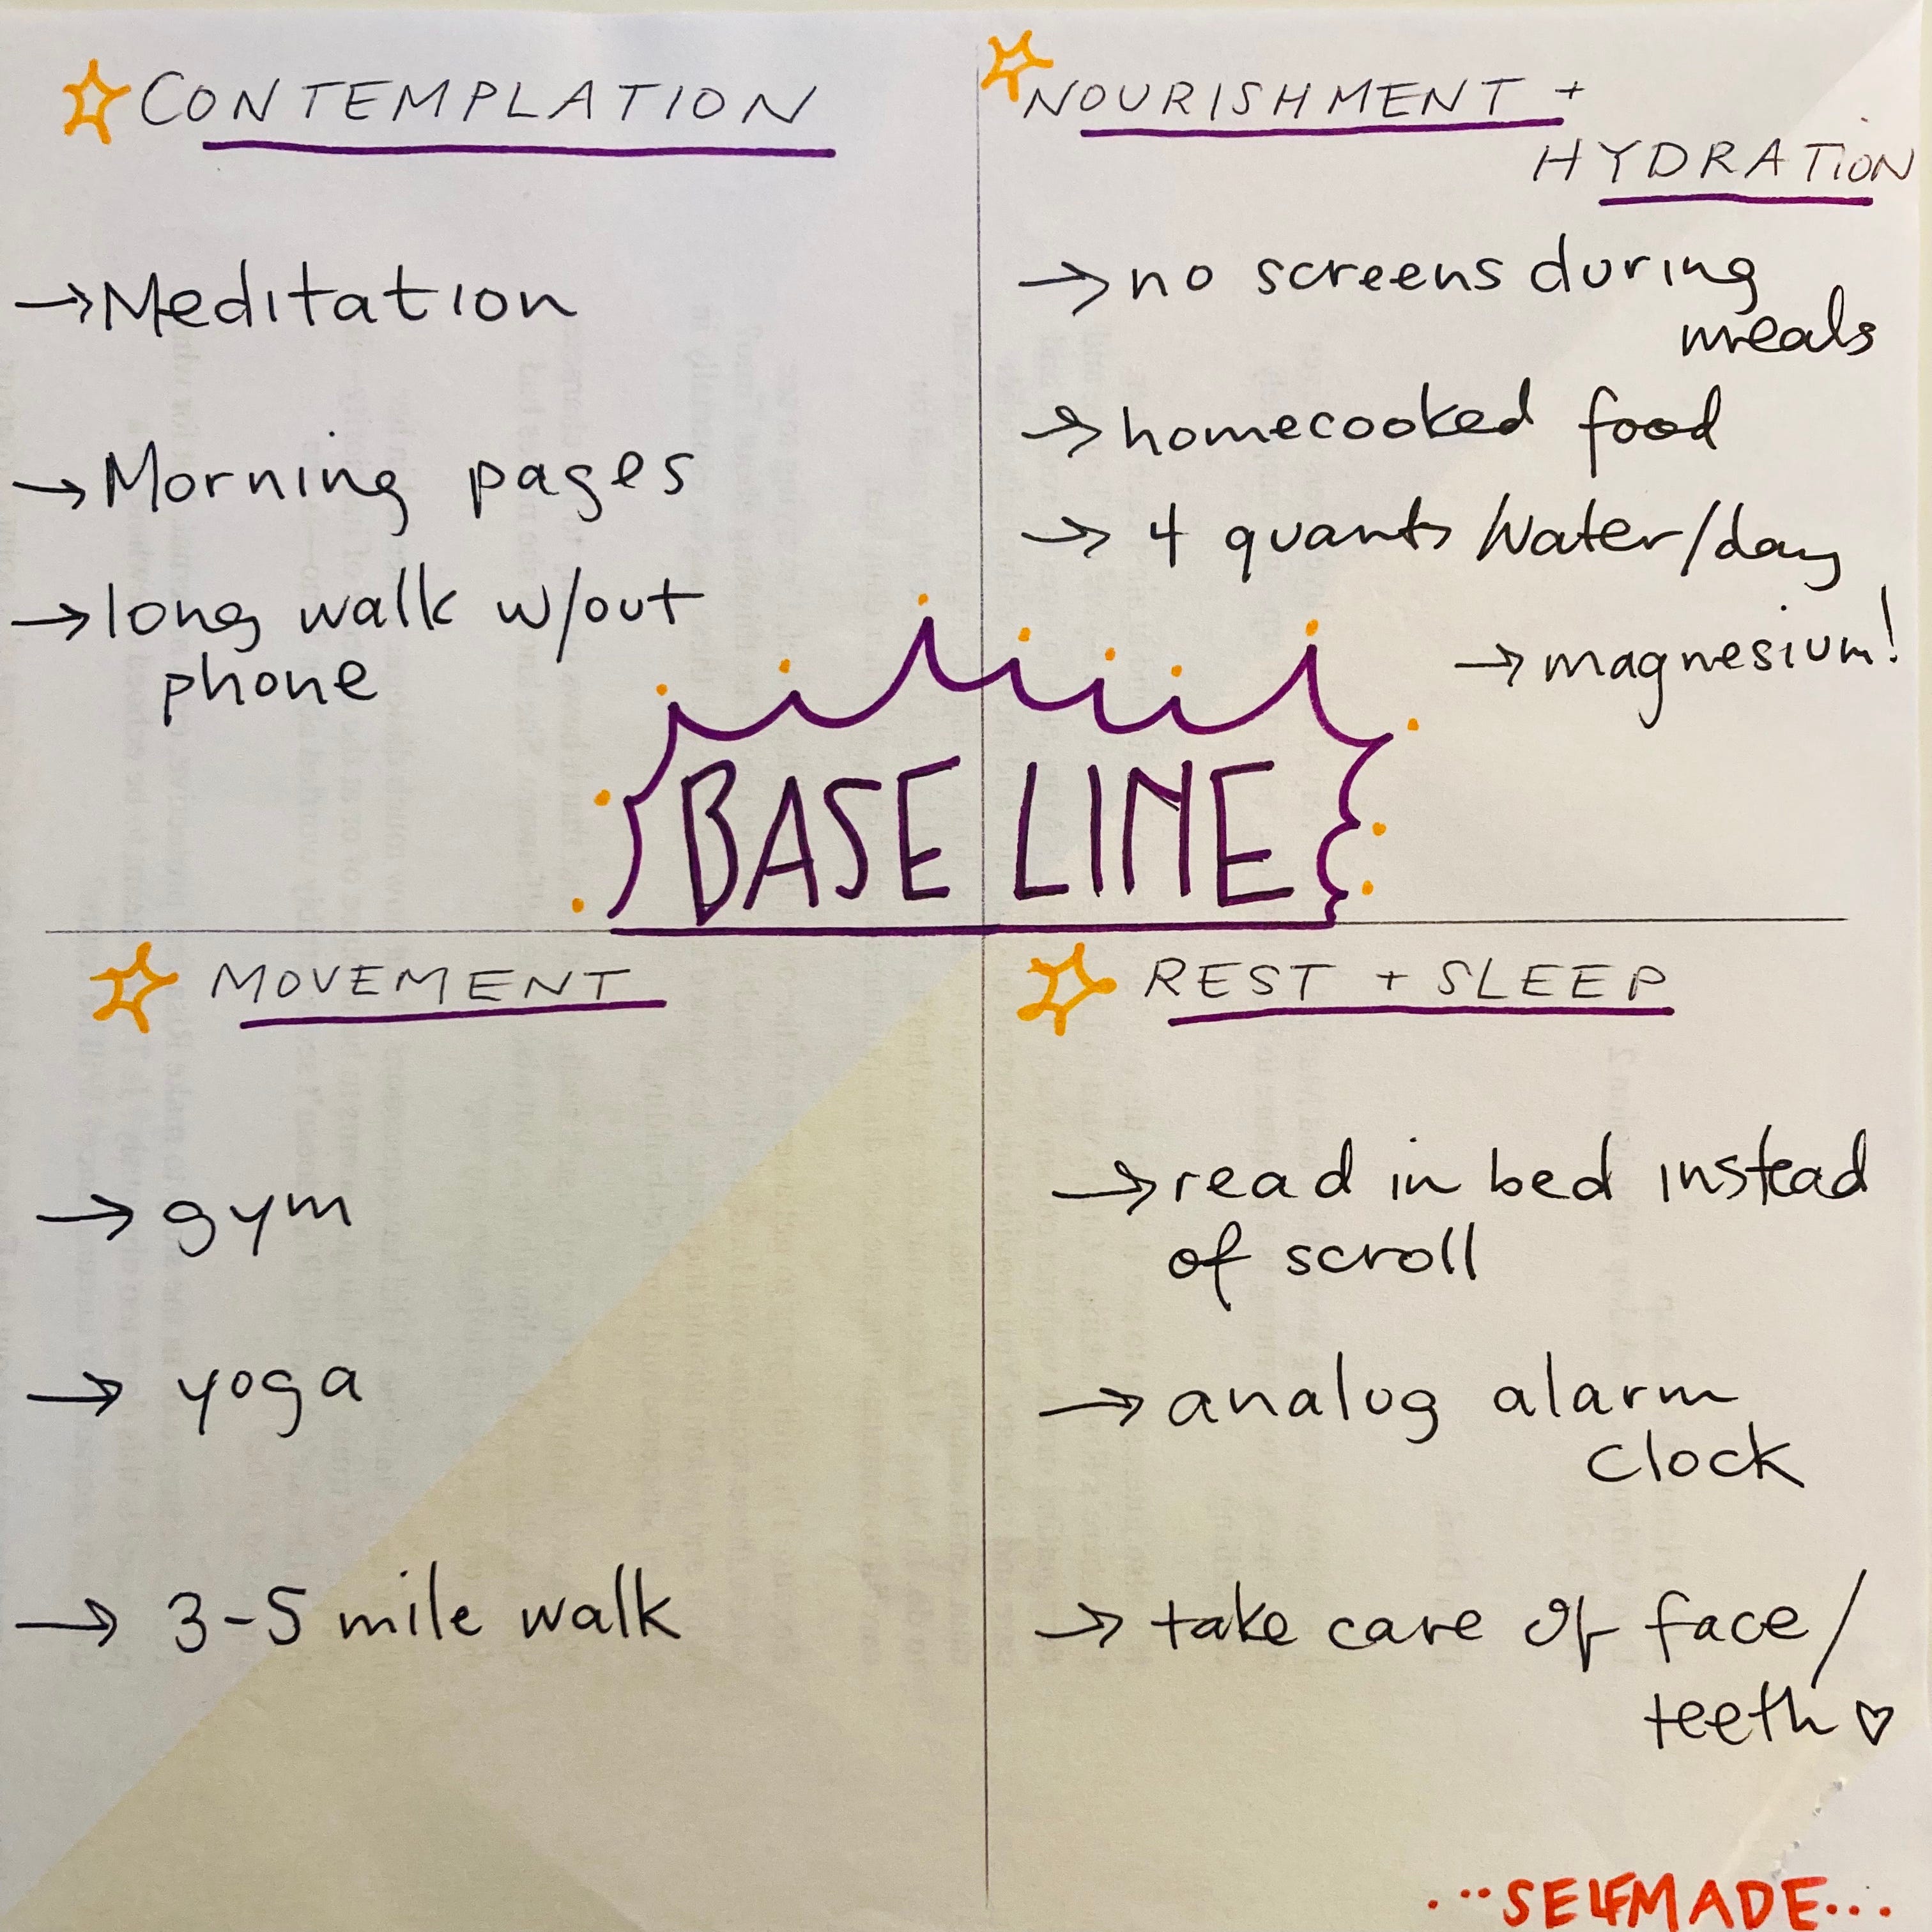 CONTEMPLATION
→Meditation
→Morning pages
→long walk w/out
phone
NOURISHMENT +
HYDRATION
→no screens during
meals
→homecooked food
→ 4 quants Water/day
→magnesium!
BASE LINE
MOVEMENT
→ gym
→ yoga
→ 3-5 mile walk
REST + SLEEP
→read in bed instead
of scroll
→ analog alarm
clock
→ take care of face/
teeth ♡
...SELFMADE...